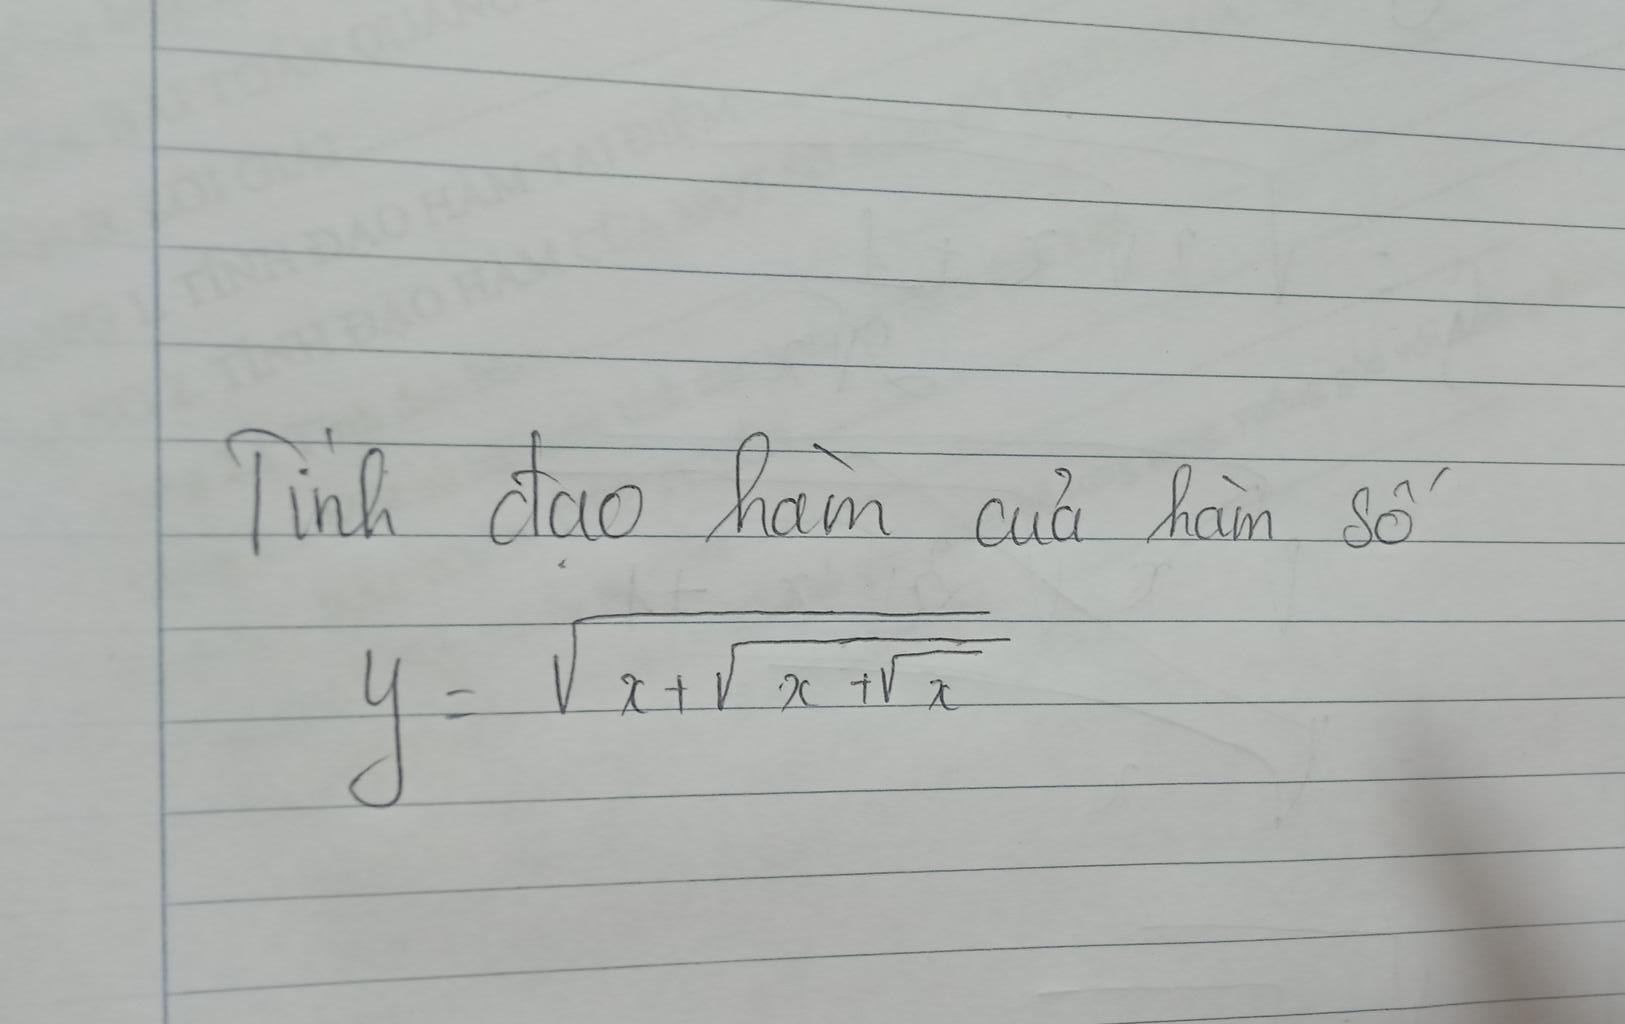 Tính đạo hàm của hàm số
y = √(x + √(x + √x))